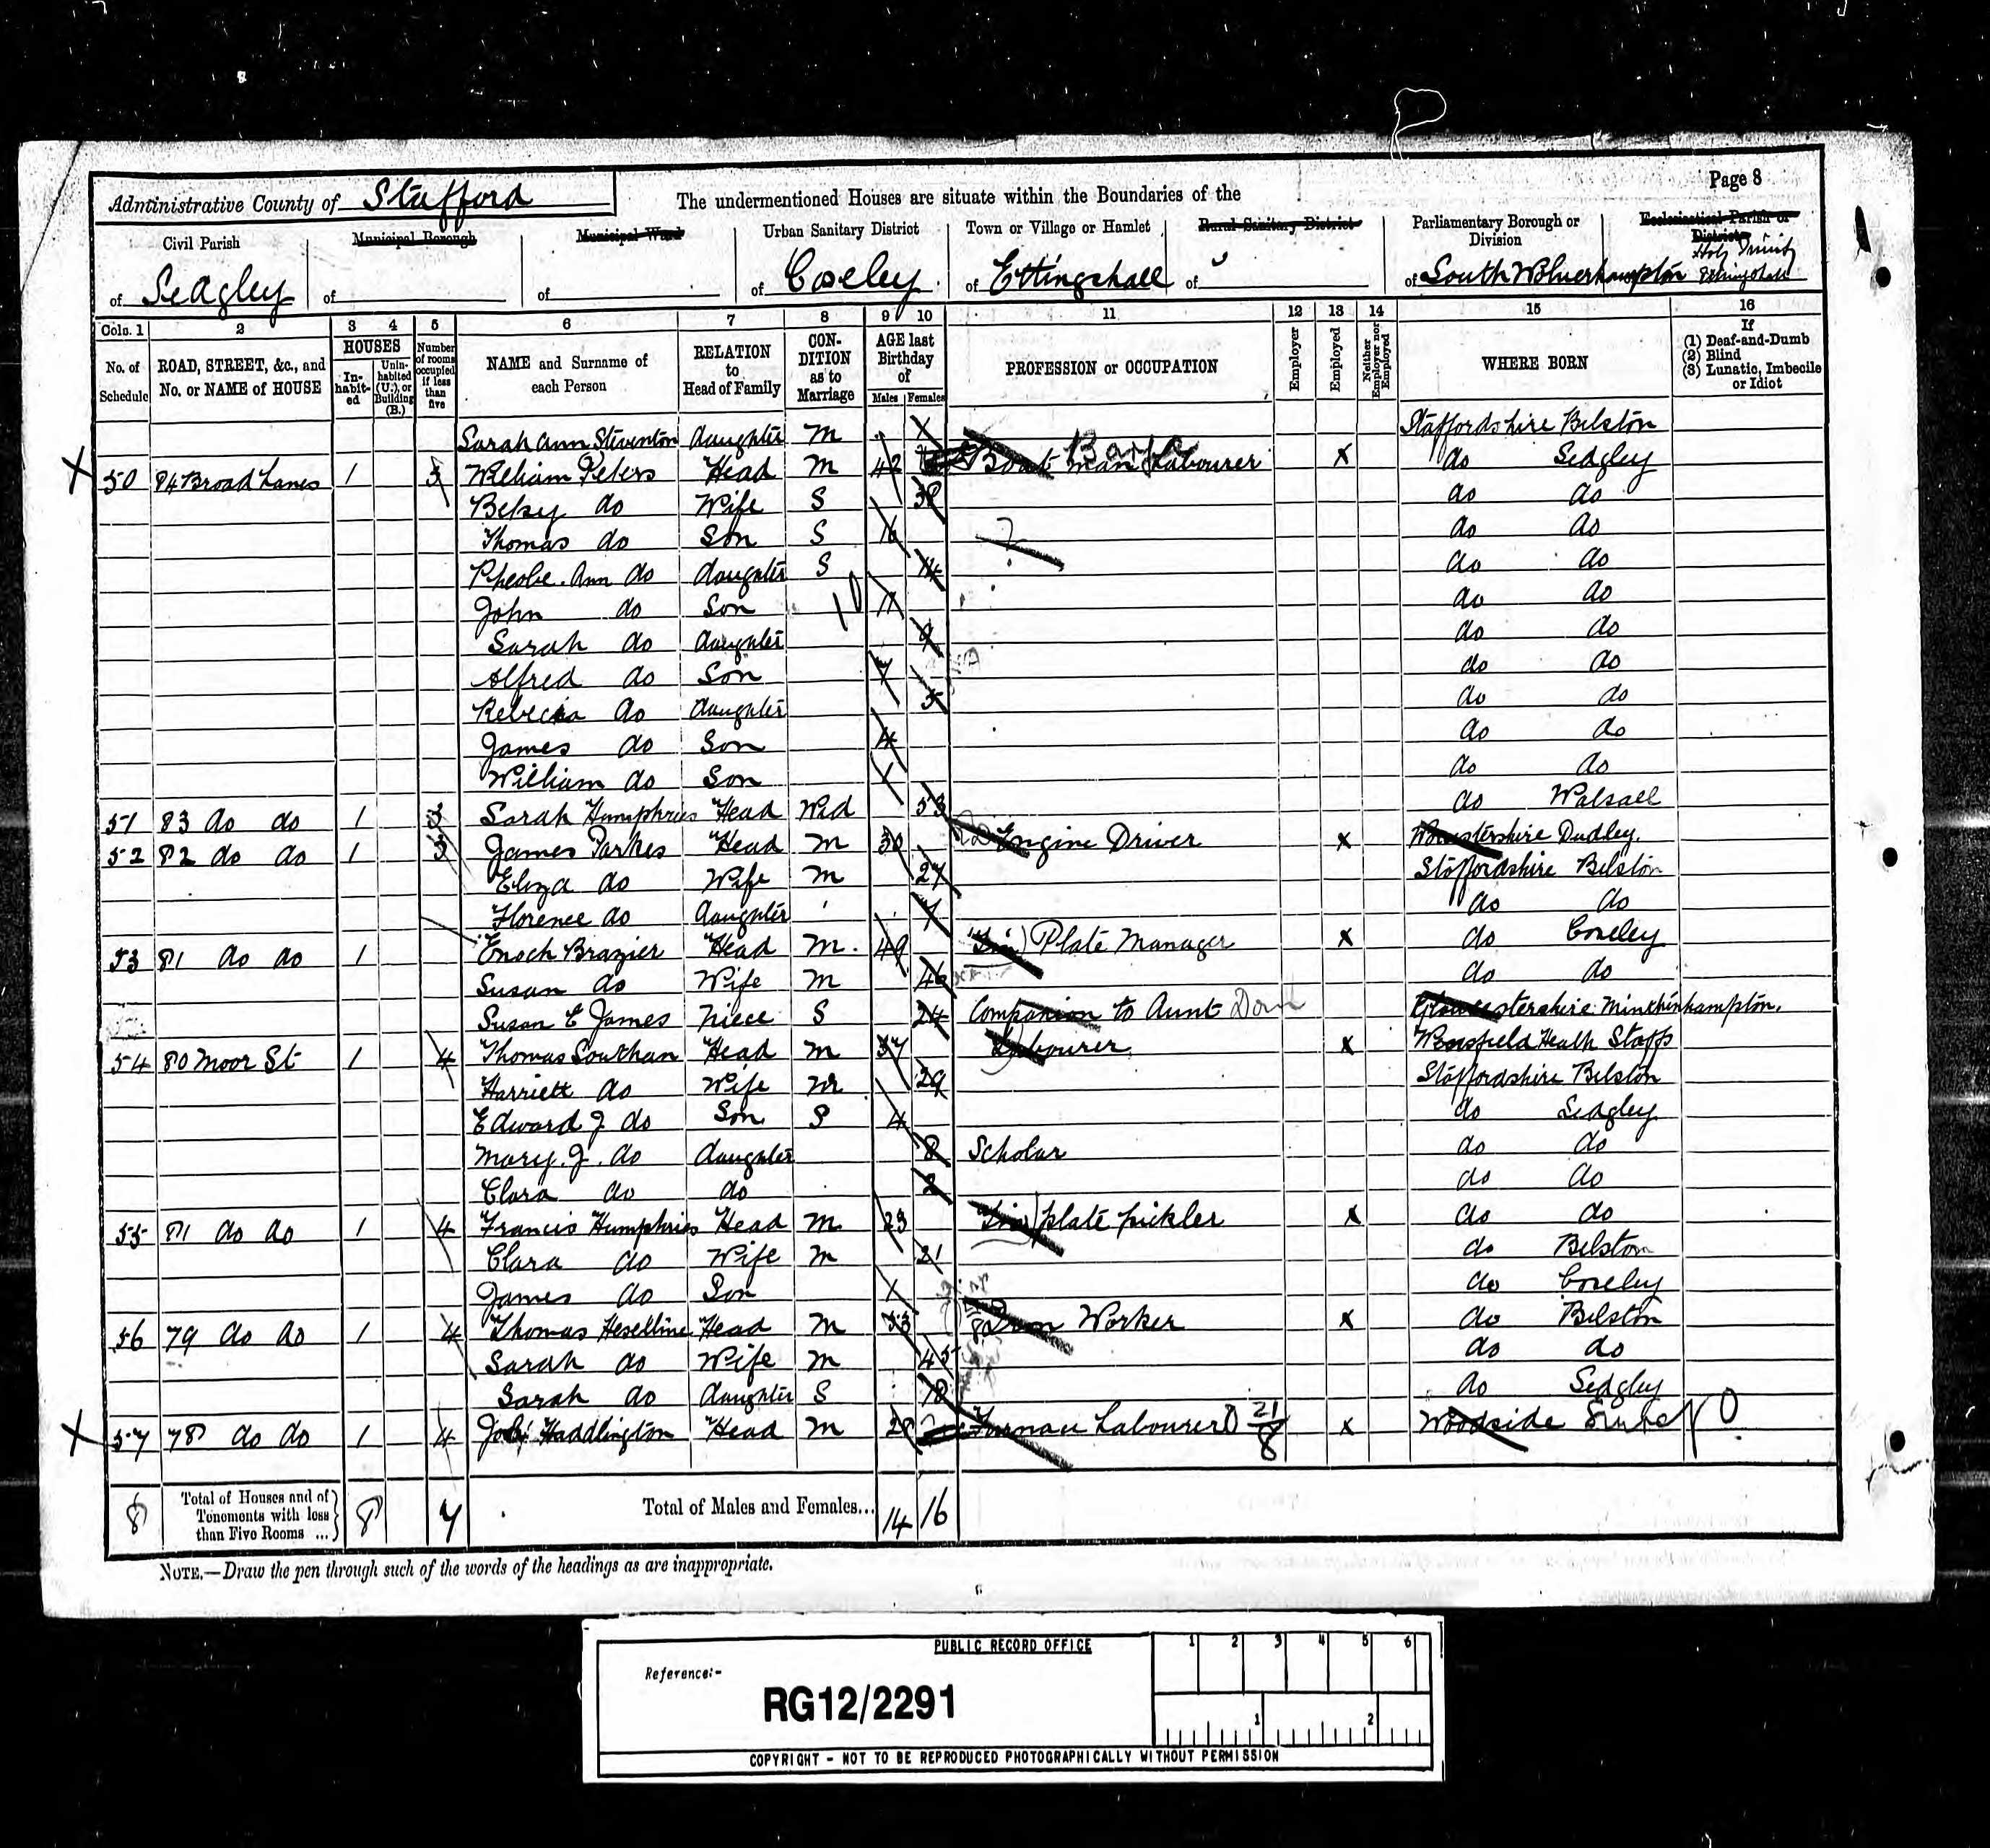 Administrative County of Stafford The undermentioned Houses are situate within the Boundaries of the Page 8
Civil Parish Municipal Borough Municipal Ward Urban Sanitary District Town or Village or Hamlet Rural Sanitary District Parliamentary Borough or Division Ecclesiastical Parish or District
of Sedgley of of of Coseley of Ettingshall of of South Wolverhampton Holy Trinity Ettingshall
Cols. 1 2 3 4 5 6 7 8 9 10 11 12 13 14 15 16
No. of Schedule ROAD, STREET, &c., and No. or NAME of HOUSE HOUSES Inhabited Uninhabited (U.), or Building (B.) Number of rooms occupied if less than five NAME and Surname of each Person RELATION to Head of Family CONDITION as to Marriage AGE last Birthday of Males Females PROFESSION or OCCUPATION Employer Employed Neither Employer nor Employed WHERE BORN If (1) Deaf-and-Dumb (2) Blind (3) Lunatic, Imbecile or Idiot
Sarah Ann Steventon daughter M Staffordshire Bilston
50 84 Broad Lanes 1 3 William Peters Head M 42 Boat man Labourer Barge X do Sedgley
Betsy do Wife S 38 do do
Thomas do Son S 16 ? do do
Pheobe Ann do daughter S 14 do do
John do Son 11 do do
Sarah do daughter 9 do do
Alfred do Son 7 do do
Rebecca do daughter 5 do do
James do Son 4 do do
William do Son 1 do do
51 83 do do 1 3 Sarah Humphries Head Wid 53 do Walsall
52 82 do do 1 3 James Parkes Head M 30 Engine Driver X Worcestershire Dudley.
Eliza do Wife M 27 Staffordshire Bilston
Florence do daughter do do
53 81 do do 1 Enoch Brazier Head M. 49 (Tin) Plate Manager X do Coseley
Susan do Wife M 46 do do
Susan E James Niece S 24 Companion to Aunt Dom Gloucestershire Minchinhampton.
54 80 Moor St 1 4 Thomas Southan Head M 37 Labourer X Wensfield Heath Staffs
Harriett do Wife M 29 Staffordshire Bilston
Edward J do Son S 4 do Sedgley
Mary. J. do daughter 8 Scholar do do
Clara do do 2 do do
55 81 do do 1 4 Francis Humphries Head M 23 (Tin) plate pickler X do do
Clara do Wife M 21 do Bilston
James do Son 1 do Coseley
56 79 do do 1 4 Thomas Heseltine Head M 53 Iron Worker X do Bilston
Sarah do Wife M 45 do do
Sarah do daughter S 18 do Sedgley
57 78 do do 1 4 Haddlington Head M 28 Furnace Labourer 21/8 X Woodside
8 Total of Houses and of Tenements with less than Five Rooms ... 8 7 Total of Males and Females... 14 16
NOTE.—Draw the pen through such of the words of the headings as are inappropriate.
PUBLIC RECORD OFFICE 1 2 3 4 5 6
Reference:-
RG12/2291
1 2
COPYRIGHT - NOT TO BE REPRODUCED PHOTOGRAPHICALLY WITHOUT PERMISSION